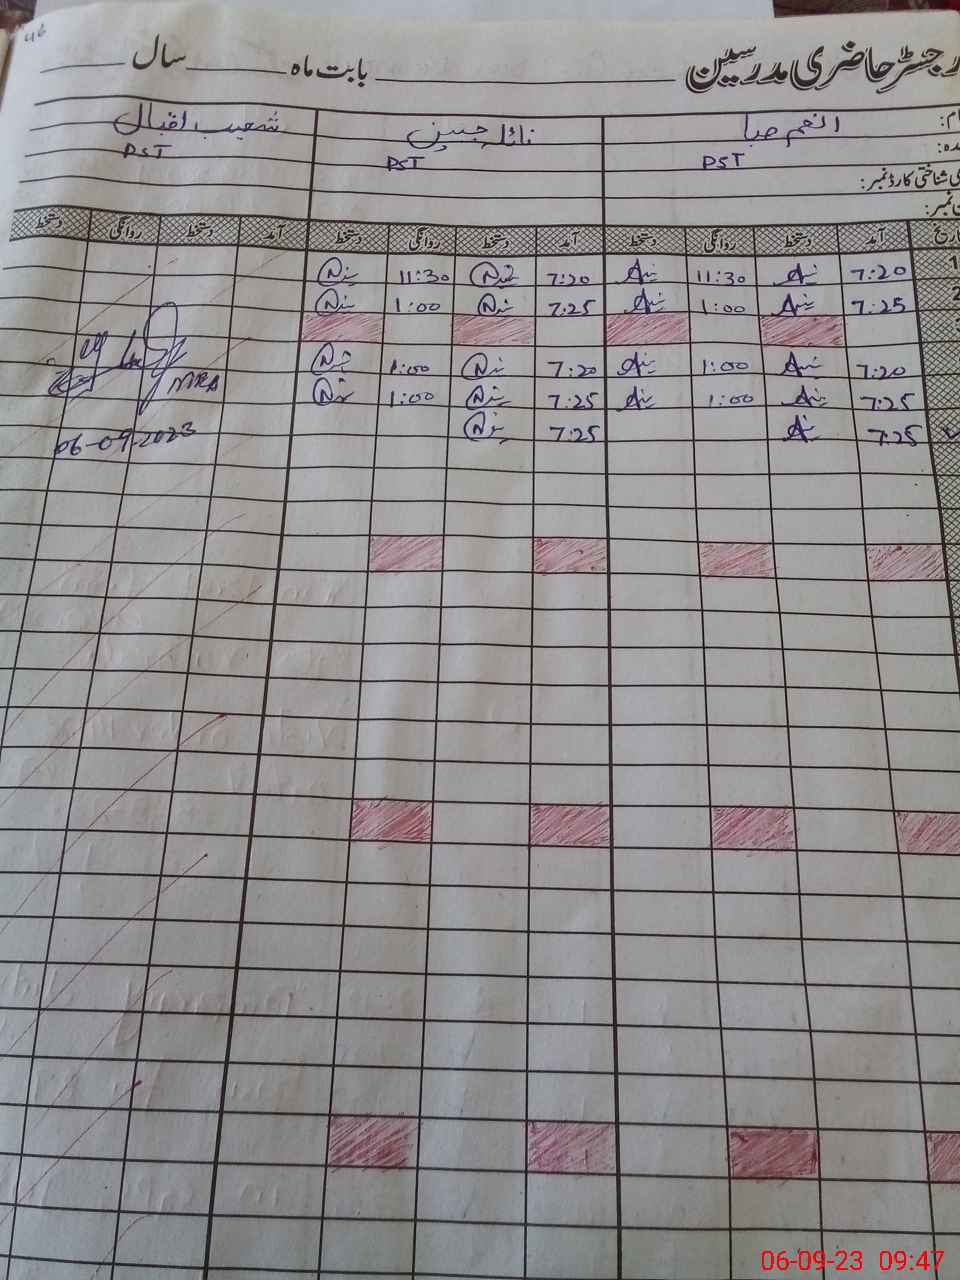 46
رجسٹر حاضری مدرسین ______ بابت ماہ ______ سال ______
نام: انعم صبا نائلہ حسین شعیب اقبال
عہدہ: PST PST PST
شناختی کارڈ نمبر:
نمبر:
تاریخ آمد دستخط روانگی دستخط آمد دستخط روانگی دستخط آمد دستخط روانگی دستخط
1 7:20 11:30 7:20 11:30
2 7:25 1:00 7:25 1:00
7:20 1:00 7:20 1:00
7:25 1:00 7:25 1:00
MEA
7:25 7:25
06-09-2023
06-09-23 09:47